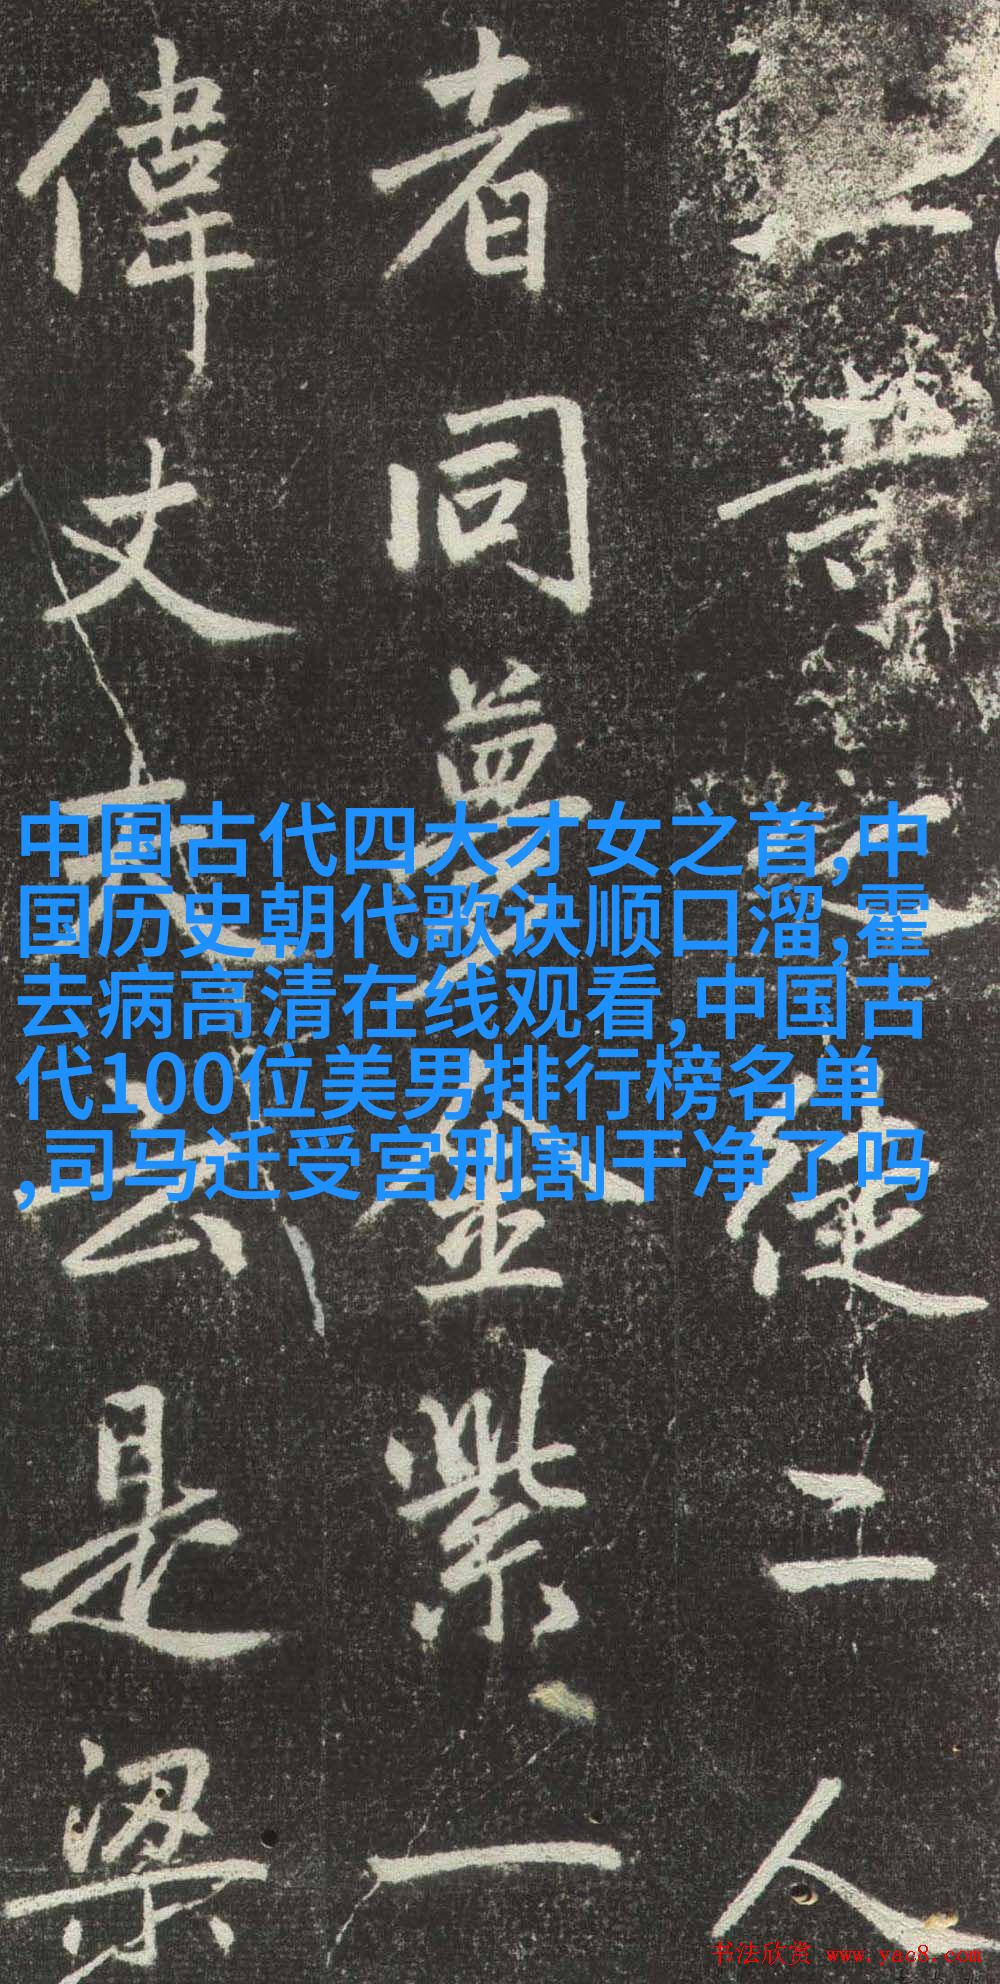 之使二人
者同夢金紫一
偉丈夫云是梁
中国古代四大才女之首,中
国历史朝代歌诀顺口溜,霍
去病高清在线观看,中国古
代100位美男排行榜名单
,司马迁受宫刑割干净了吗
书法欣赏 www.yac8.com